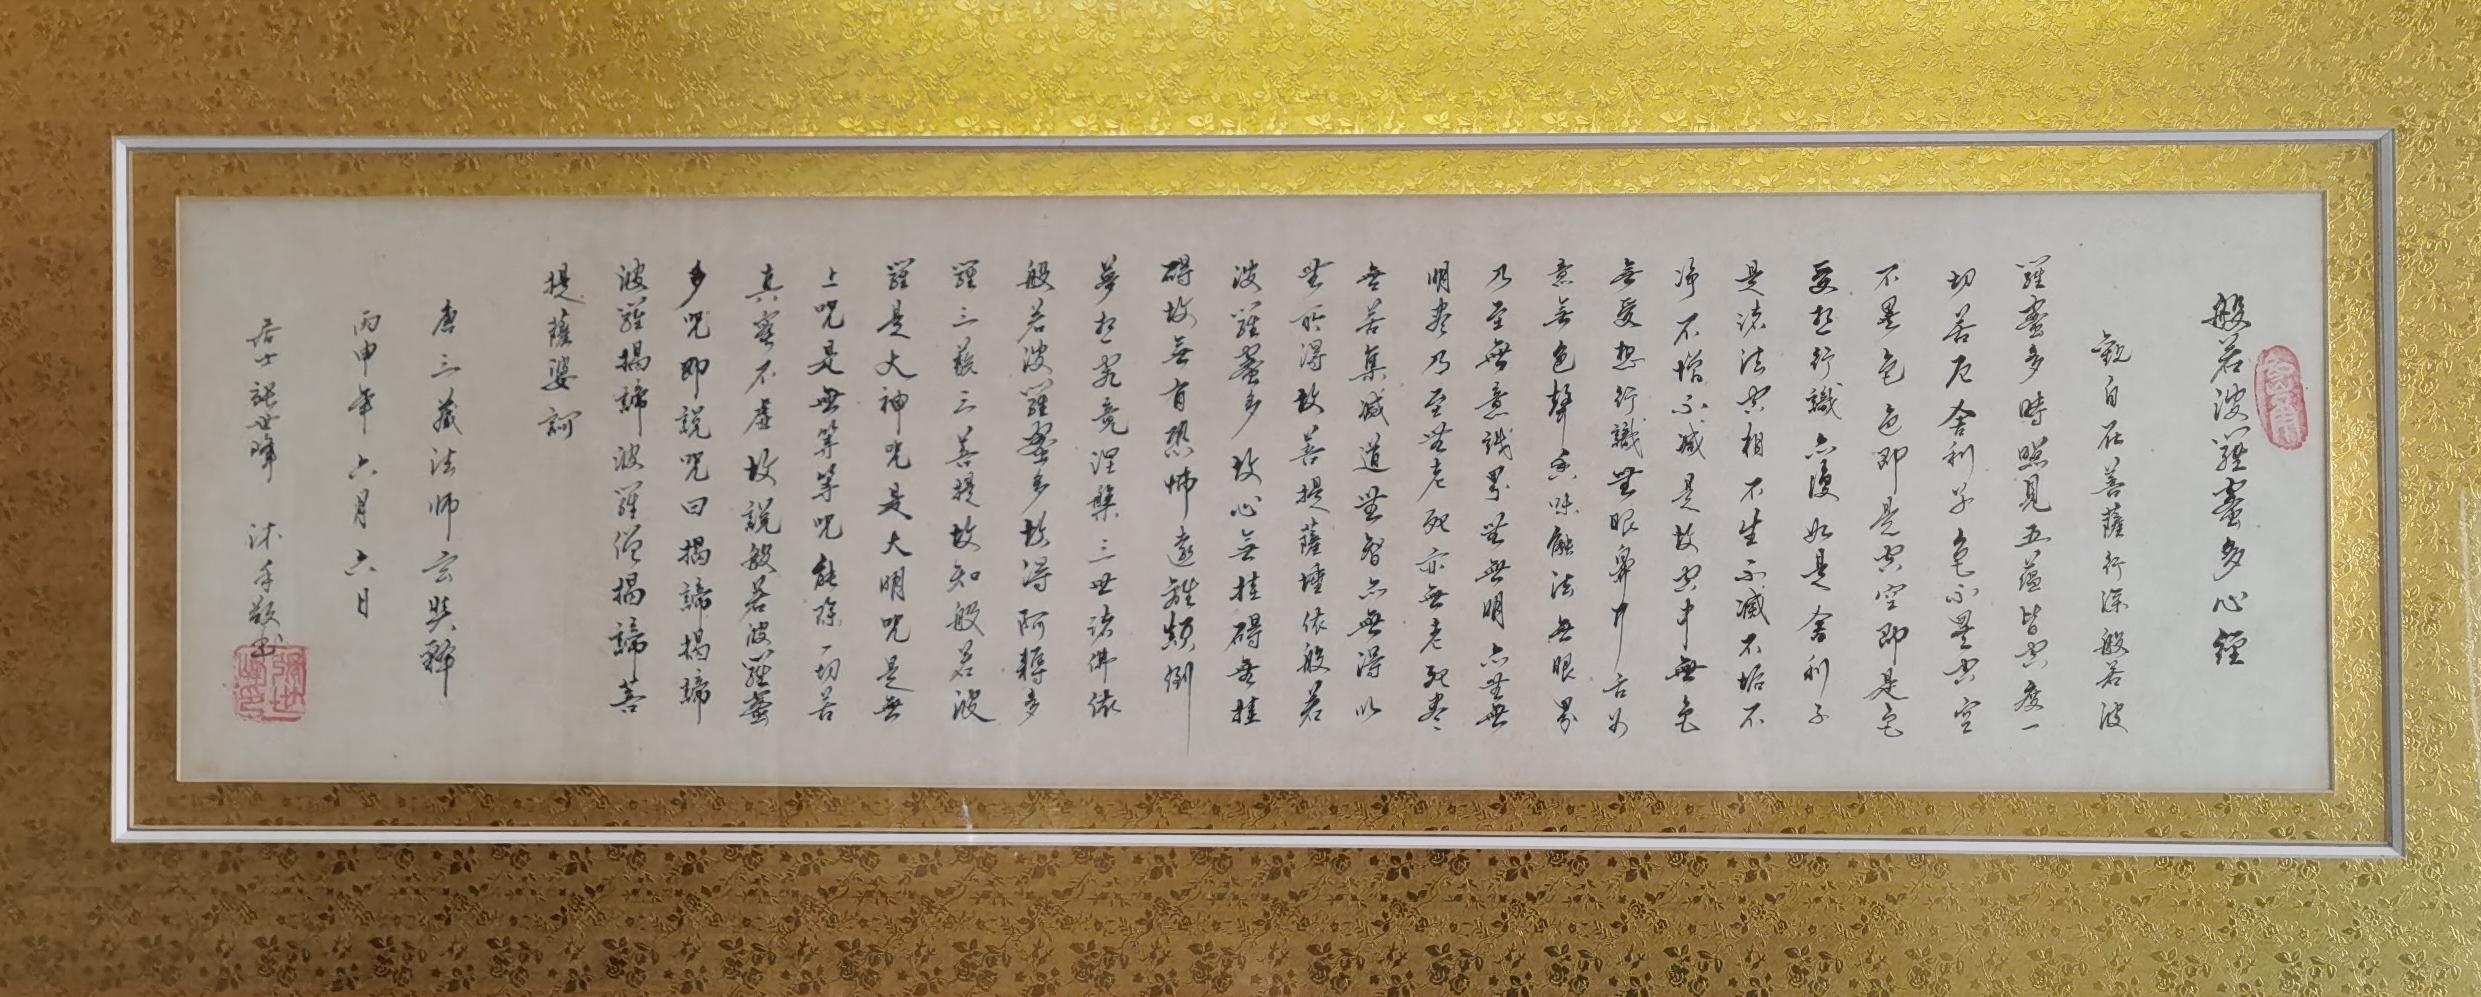 般若波羅蜜多心經
觀自在菩薩行深般若波
羅蜜多時照見五蘊皆空度一
切苦厄舍利子色不異空空
不異色色即是空空即是色
受想行識亦復如是舍利子
是諸法空相不生不滅不垢不
淨不增不減是故空中無色
無受想行識無眼鼻耳舌身
意無色聲香味觸法無眼界
乃至無意識界無無明亦無無
明盡乃至無老死亦無老死盡
無苦集滅道無智亦無得以
無所得故菩提薩埵依般若
波羅蜜多故心無挂碍無挂
碍故無有恐怖遠離顛倒
夢想究竟涅槃三世諸佛依
般若波羅蜜多故得阿耨多
羅三藐三菩提故知般若波
羅是大神咒是大明咒是無
上咒是無等等咒能除一切苦
真實不虛故說般若波羅蜜
多咒即說咒曰揭諦揭諦
波羅揭諦波羅僧揭諦菩
提薩婆訶
唐三藏法师玄奘釋
丙申年六月六日
居士張世峰 沐手敬書